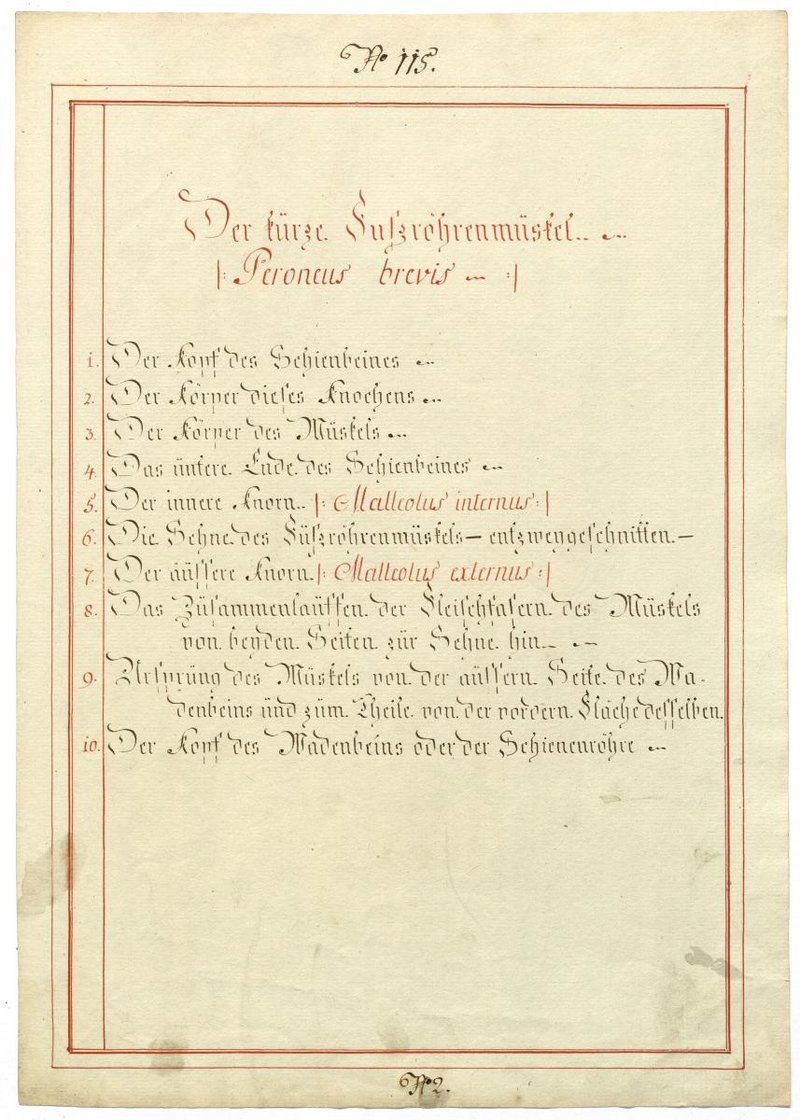 No 115.
Der kürze Fußröhrenmüskel.
|: Peroneus brevis :|
1. Der Kopf des Schienbeines
2. Der Körper dieses Knochens
3. Der Körper des Müskels
4. Das üntere Ende des Schienbeines
5. Der innere Knorn. |: Malleolus internus :|
6. Die Sehne des Füßröhrenmüskels – entzweygeschnitten. –
7. Der äüssere Knorn. |: Malleolus externus :|
8. Das Züsammenlaüffen der Fleischfasern des Müskels
von beyden Seiten zür Sehne hin
9. Ursprüng des Müskels von der äüssern Seite des Wa-
denbeins ünd züm Theile von der vordern Fläche desselben.
10. Der Kopf des Wadenbeins oder der Schienenröhre
No 2.